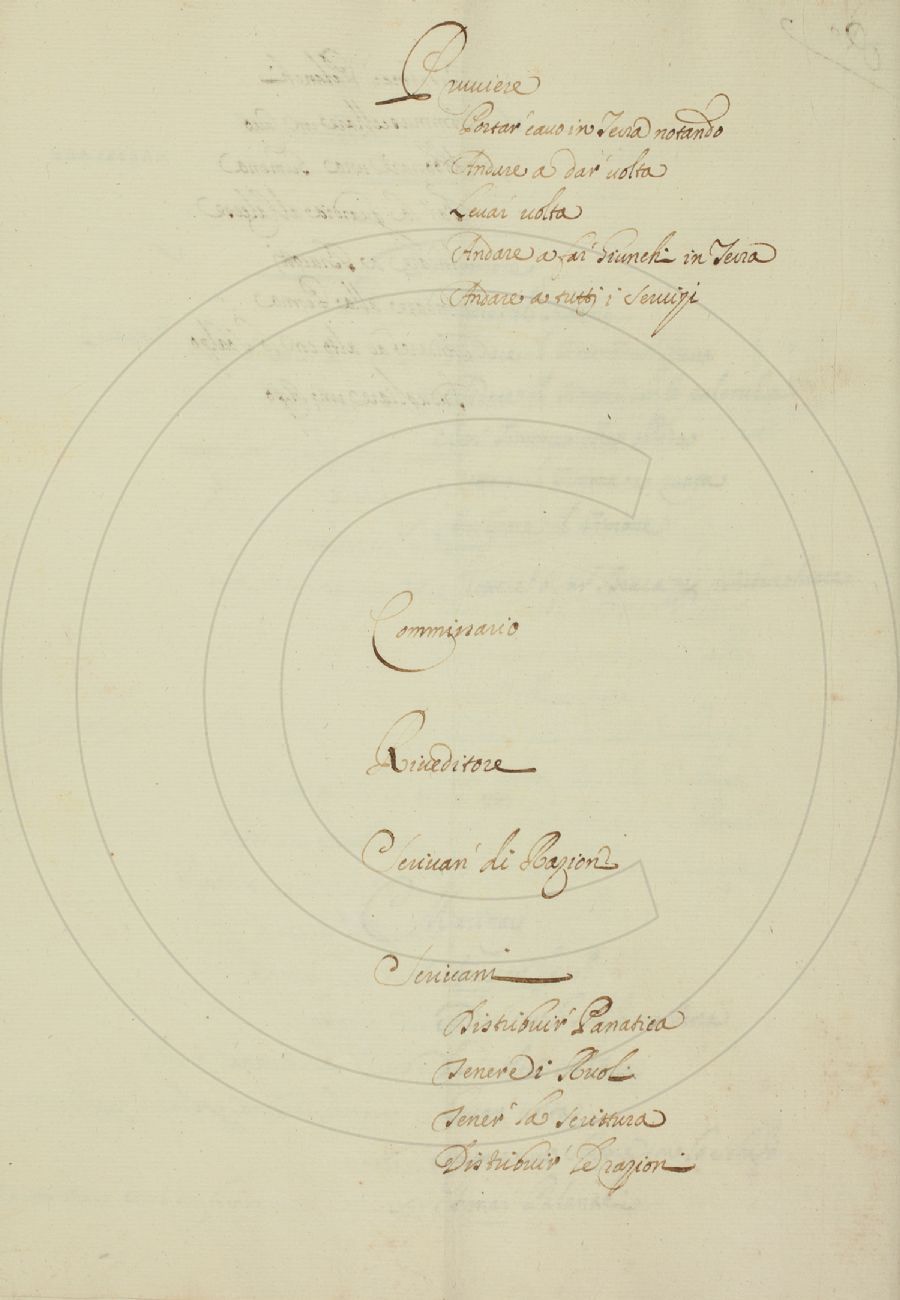 Pruuiere
Portar' cauo in Terra notando
Andare a dar' uolta
Leuar uolta
Andare a far' Giunchi in Terra
Andare a tuttj i seruizi
Commissario
Riueditore
Scriuan' di Razioni
Scriuani
Distribuir' Panatica
Tenere i Ruoli
Tener' la scrittura
Distribuir' le razioni